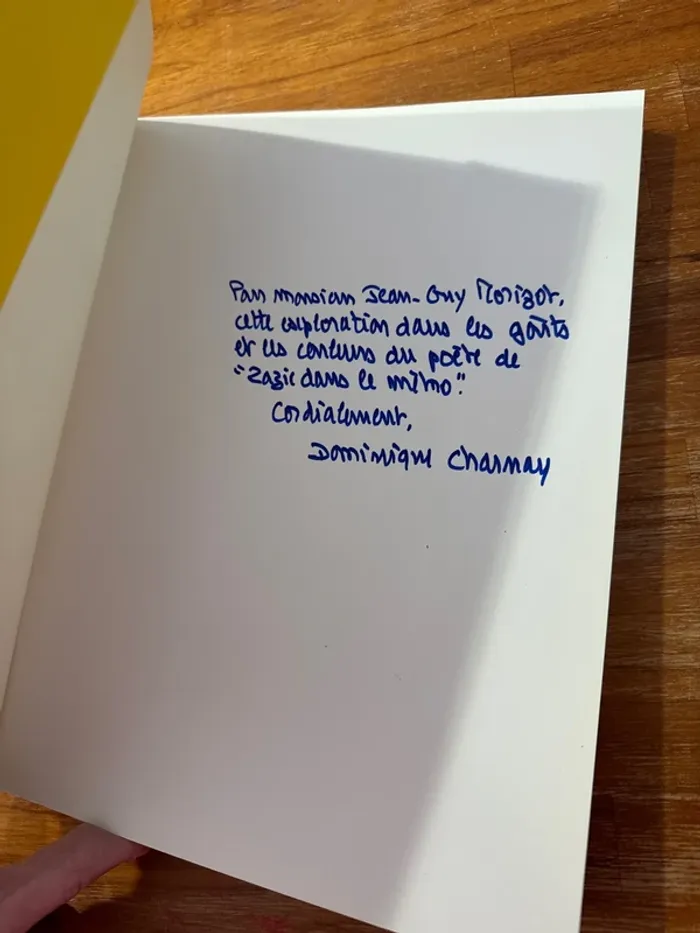 Pour monsieur Jean-Guy Morizot,
cette exploration dans les goûts
et les couleurs du poète de
"Zazie dans le métro".
Cordialement,
Dominique Charnay